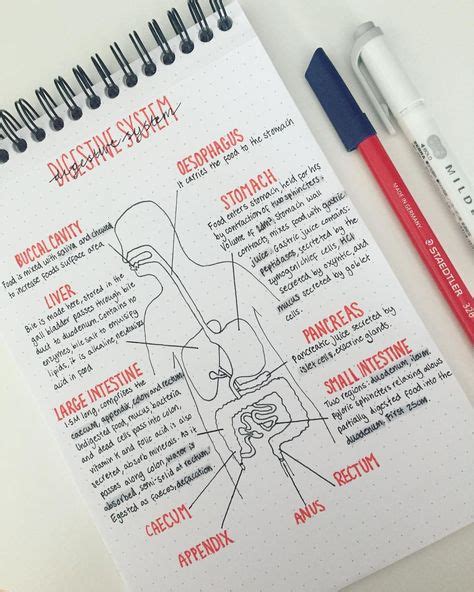 DIGESTIVE SYSTEM
digestive system
OESOPHAGUS
It carries the food to the stomach
BUCCAL CAVITY
Food is mixed with saliva and chewed
to increase foods surface area
STOMACH
Food enters stomach held for hrs
by contraction of two sphincters
volume of stomach wall
contracts mixes food with gastric
juice. Gastric juice contains:
peptidases, secreted by the
zymogen/chief cells, HCl
secreted by oxyntic and
mucus secreted by goblet
cells.
LIVER
Bile is made here, stored in the
gall bladder passes through bile
duct to duodenum. Contains no
enzymes, bile salt to emulsify
lipids, it is alkaline neutralize
acid in food
PANCREAS
Pancreatic juice secreted by
islet cells, exocrine glands.
LARGE INTESTINE
1.5M long, comprises the
caecum, appendix, colon and rectum
Undigested food, mucus, bacteria
and dead cells pass into colon.
vitamin K and folic acid is also
secreted, absorb minerals. As it
passes along colon, water is
absorbed, semi-solid at rectum
Egested as faeces, defacation.
SMALL INTESTINE
Two regions: duodenum, ileum.
Pyloric sphincters relaxing allows
partially digested food into the
duodenum, first 25cm.
CAECUM
APPENDIX
ANUS
RECTUM
MADE IN GERMANY
STAEDTLER
326
MILD